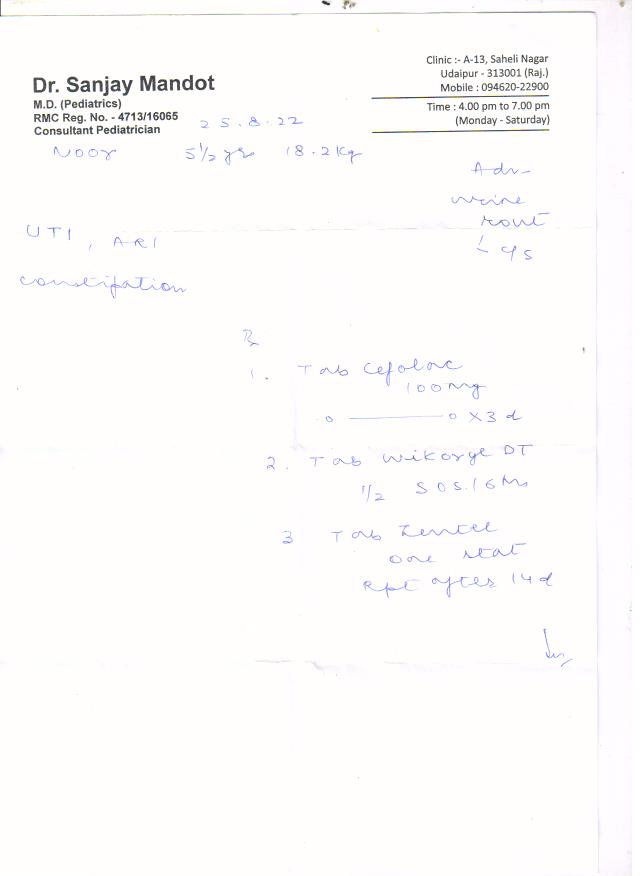 Dr. Sanjay Mandot
M.D. (Pediatrics)
RMC Reg. No. - 4713/16065
Consultant Pediatrician
Clinic :- A-13, Saheli Nagar
Udaipur - 313001 (Raj.)
Mobile : 094620-22900
Time : 4.00 pm to 7.00 pm
(Monday - Saturday)
25.8.22
Noor 5½ yrs 18.2 Kg
Adv
urine
rout
UTI, ARI
constipation
Rx
1. Tab Cefolac
100mg
0 — 0 x 3 d
2. Tab Wikoryl DT
1/2 SOS / 6 Hrs
3 Tab Zentel
one stat
Rpt after 14 d